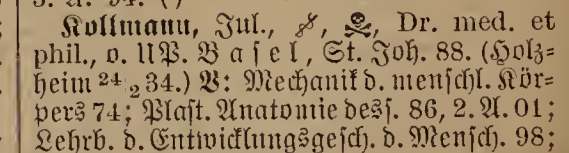 Kollmann, Jul., Dr. med. et
phil., o. UP. Basel, St. Joh. 88. (Holz=
heim 24/2 34.) V: Mechanik d. menschl. Kör=
pers 74; Plast. Anatomie dess. 86, 2. A. 01;
Lehrb. d. Entwicklungsgesch. d. Mensch. 98;